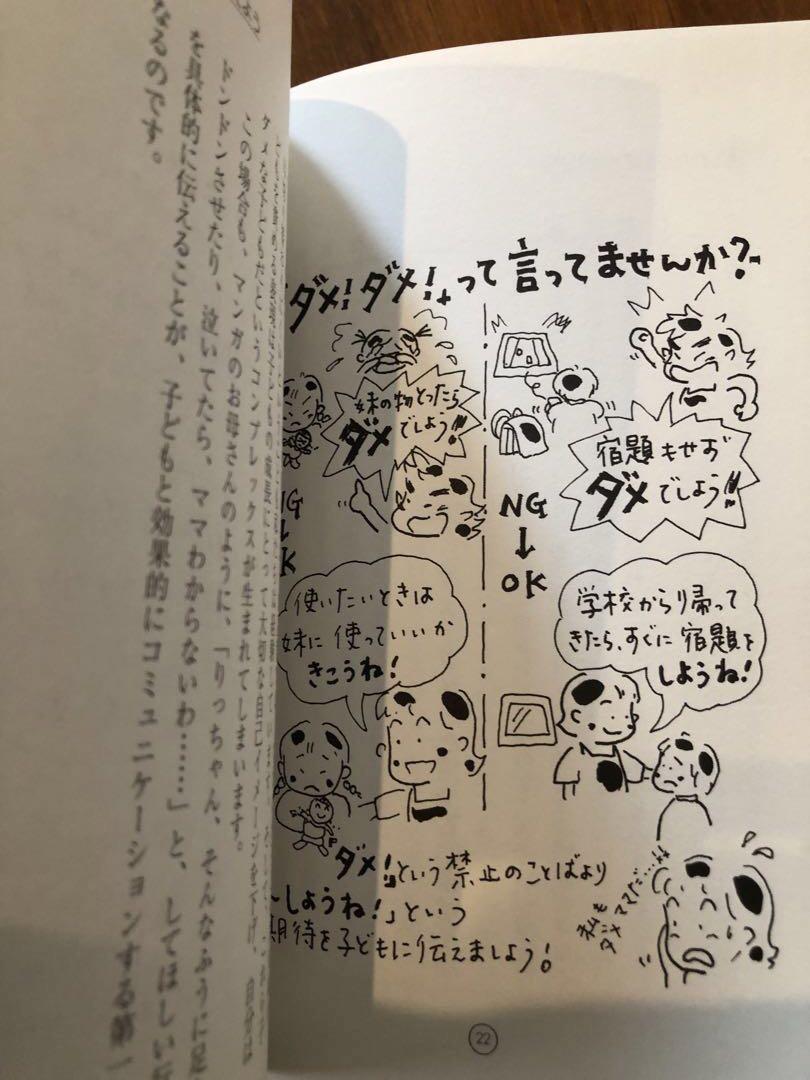 「ダメ!ダメ!」って言ってませんか?
宿題もせず
ダメでしょう!!
NG
↓
OK
学校から帰って
きたら、すぐに宿題を
しようね!
妹の物とったら
ダメでしょう!!
G
↓
K
使いたいときは
妹に使っていいか
きこうね!
ダメ!」という禁止のことばより
～しようね!」という
期待を子どもに伝えましょう!
私も
ダメママだ…
22
ダメな子どもだというコンプレックスが生まれてしまいます。
この場合も、マンガのお母さんのように、「りっちゃん、そんなふうに足
ドンドンさせたり、泣いてたら、ママわからないわ……」と、してほしい
を具体的に伝えることが、子どもと効果的にコミュニケーションする第一
なるのです。